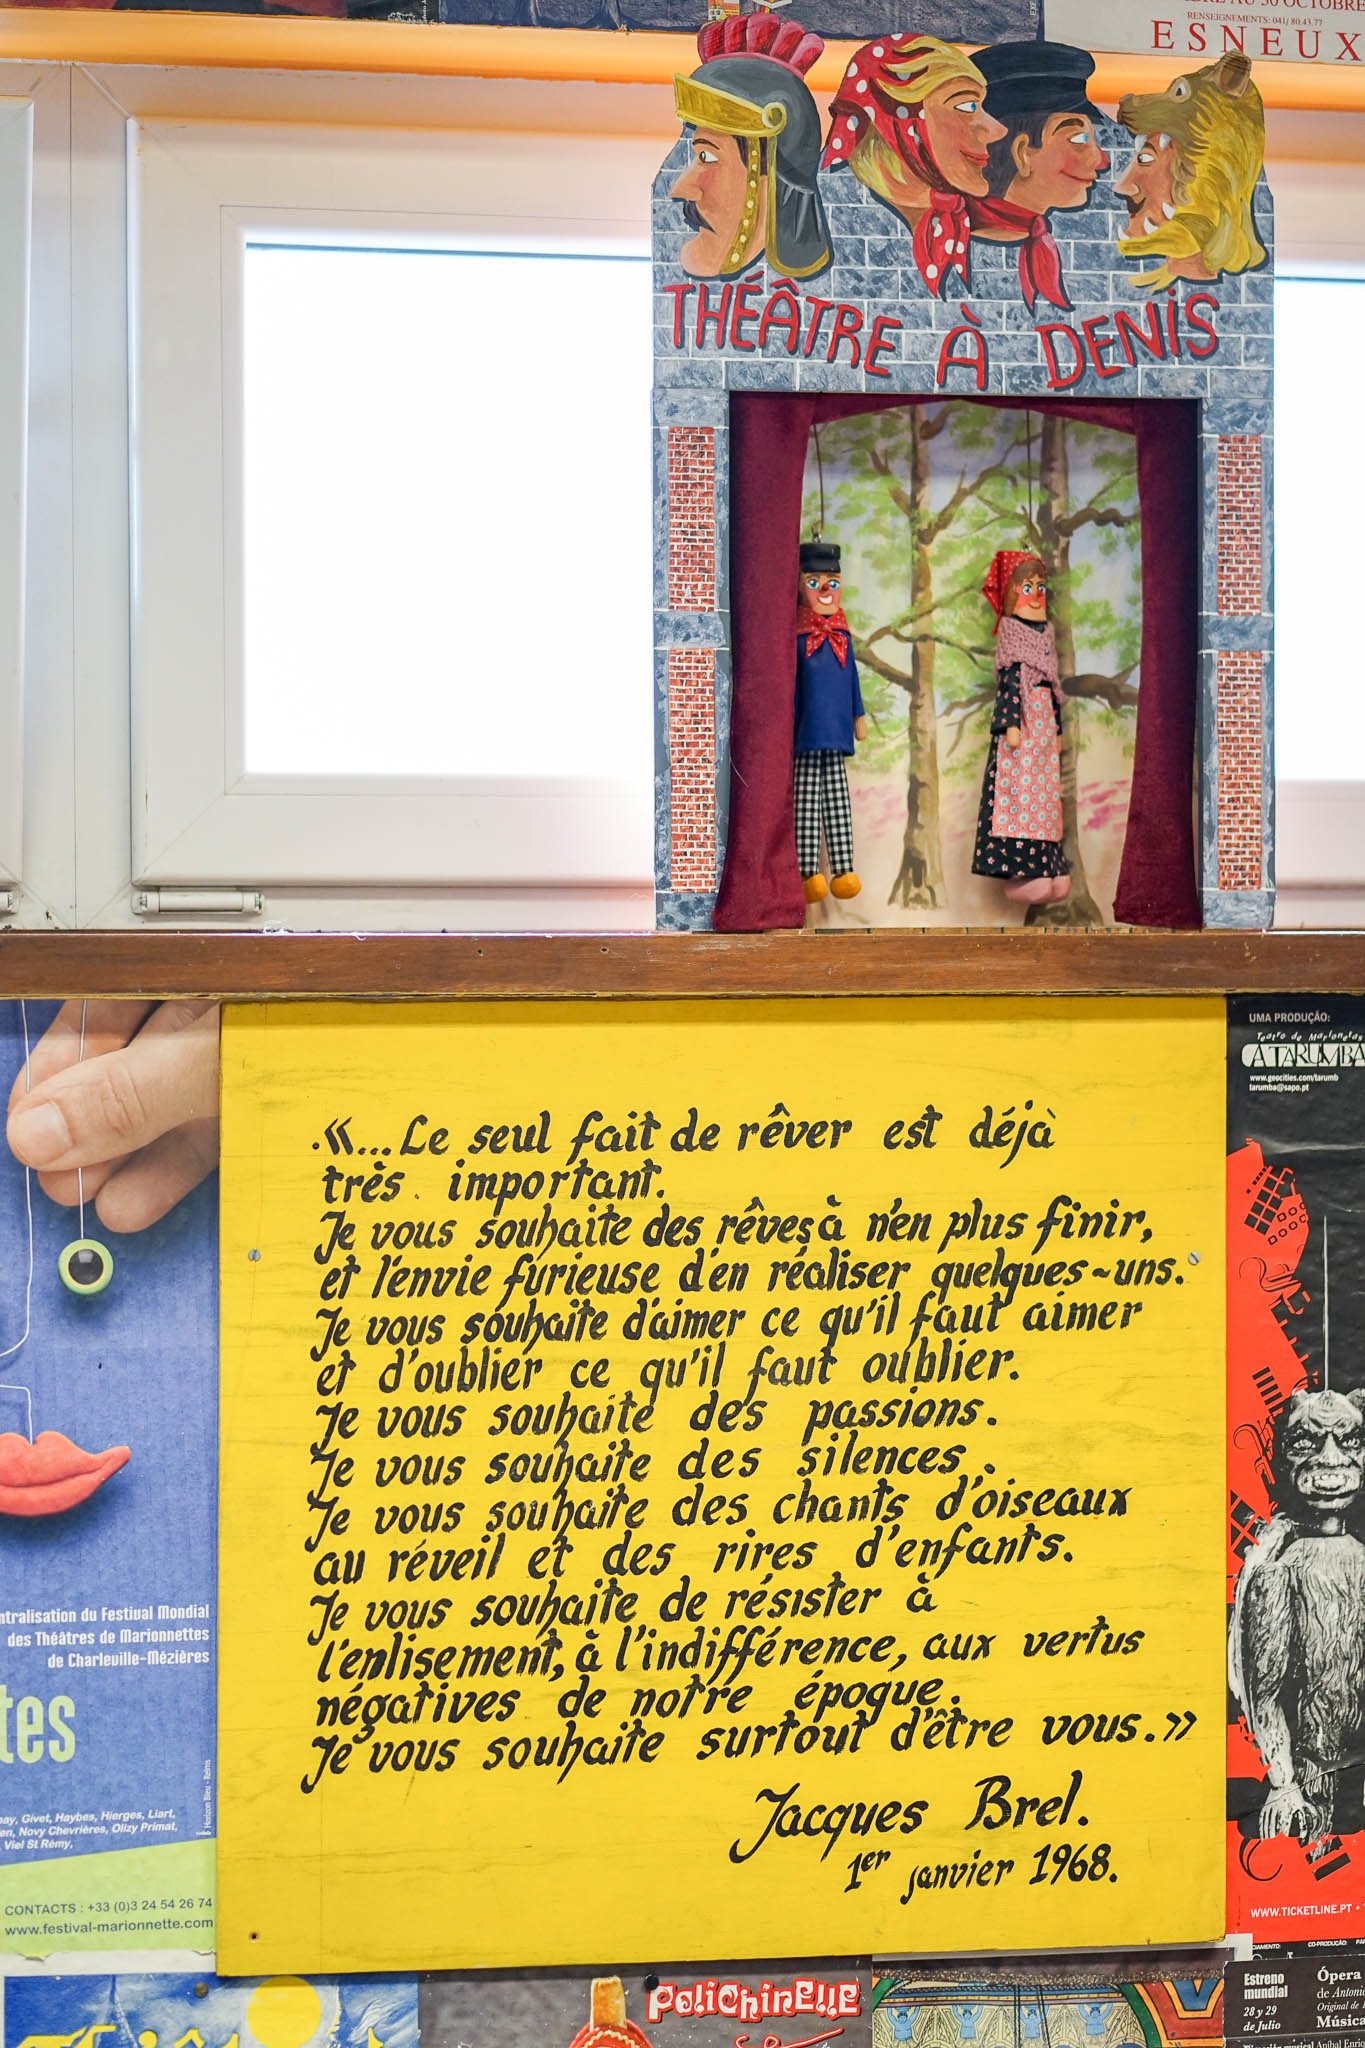 RE AU 30 OCTOBRE
RENSEIGNEMENTS: 041/ 80.43.77
ESNEUX
THÉÂTRE À DENIS
UMA PRODUÇÃO:
Teatro de Marionetas
A TARUMBA
www.geocities.com/tarumb
tarumba@sapo.pt
«...Le seul fait de rêver est déjà
très important.
Je vous souhaite des rêves à n'en plus finir,
et l'envie furieuse d'en réaliser quelques-uns.
Je vous souhaite d'aimer ce qu'il faut aimer
et d'oublier ce qu'il faut oublier.
Je vous souhaite des passions.
Je vous souhaite des silences.
Je vous souhaite des chants d'oiseaux
au réveil et des rires d'enfants.
Je vous souhaite de résister à
l'enlisement, à l'indifférence, aux vertus
négatives de notre époque.
Je vous souhaite surtout d'être vous.»
Jacques Brel.
1er janvier 1968.
ntralisation du Festival Mondial
des Théâtres de Marionnettes
de Charleville-Mézières
tes
Horizon Bleu - Reims
ay, Givet, Haybes, Hierges, Liart,
en, Novy Chevrières, Olizy Primat,
Viel St Rémy,
CONTACTS : +33 (0)3 24 54 26 74
www.festival-marionnette.com
WWW.TICKETLINE.PT
CIAMENTO: CO-PRODUÇÃO:
POLICHINELLE
Estreno
mundial
28 y 29
de Julio
Ópera
de Antonio
Original de
Música
musical Aníbal Enric